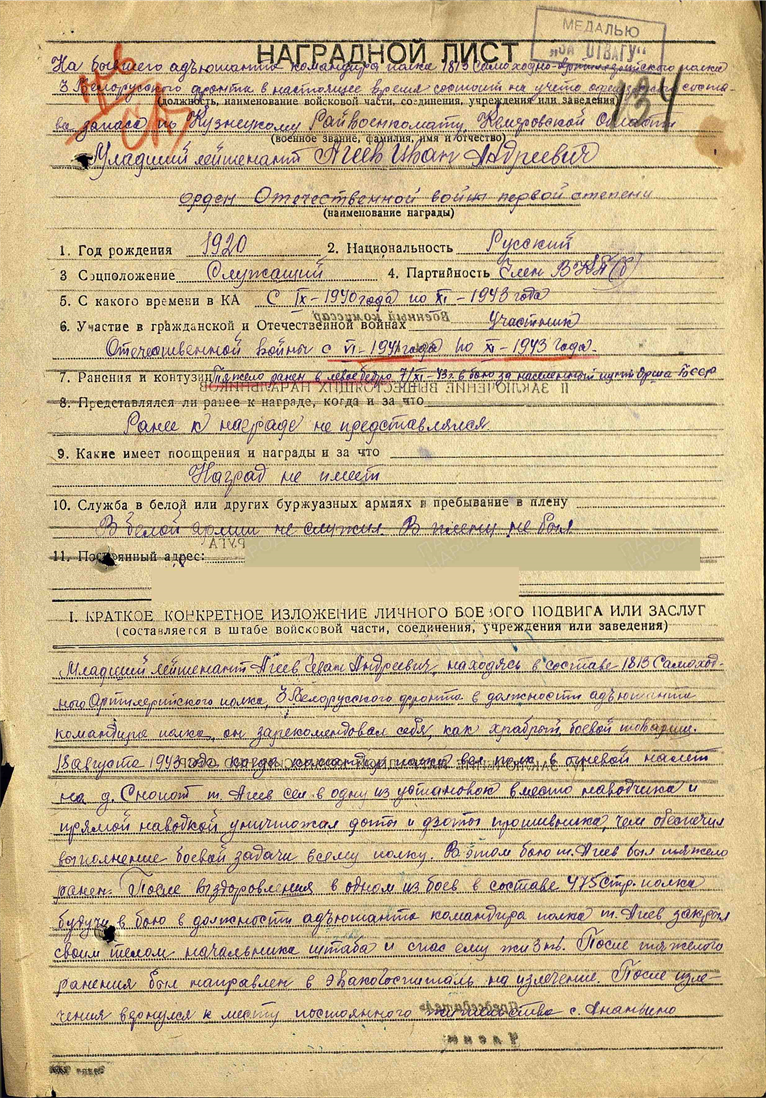 МЕДАЛЬЮ
"ЗА ОТВАГУ"
НАГРАДНОЙ ЛИСТ
На бывшего адъютанта командира полка 1813 Самоходно-Артиллерийского полка
134
3 Белорусского фронта в настоящее время состоит на учёте соста-
(должность, наименование войсковой части, соединения, учреждения или заведения)
ва запаса по Кузнецкому Райвоенкомату, Кемеровской Области
(военное звание, фамилия, имя и отчество)
Младший лейтенант Агеев Иван Андреевич
орден Отечественной войны первой степени
(наименование награды)
1. Год рождения 1920 2. Национальность Русский
3 Соцположение Служащий 4. Партийность Член ВКП(б)
5. С какого времени в КА С IX-1940 года по XI-1943 года
Военный комиссар
6. Участие в гражданской и Отечественной войнах Участник
Отечественной войны с VI-1941 года по XI-1943 года.
7. Ранения и контузии Тяжело ранен в левое бедро 7/XI-43г. в бою за населенный пункт Орша БССР
II ЗАКЛЮЧЕНИЕ ВЫШЕСТОЯЩИХ НАЧАЛЬНИКОВ
8. Представлялся ли ранее к награде, когда и за что
Ранее к награде не представлялся
9. Какие имеет поощрения и награды и за что
Наград не имеет
10. Служба в белой или других буржуазных армиях и пребывание в плену
В белой армии не служил. В плену не был
11. Постоянный адрес:
I. КРАТКОЕ, КОНКРЕТНОЕ ИЗЛОЖЕНИЕ ЛИЧНОГО БОЕВОГО ПОДВИГА ИЛИ ЗАСЛУГ
(составляется в штабе войсковой части, соединения, учреждения или заведения)
Младший лейтенант Агеев Иван Андреевич, находясь в составе 1813 Самоход-
ного Артилерийского полка, 3 Белорусского фронта в должности адъютанта
командира полка, он зарекомендовал себя, как храбрый боевой товарищ.
18 августа 1943 года когда командир полка вёл полк в огневой налет
на д. Снопот т. Агеев сел в одну из установок вместо наводчика и
прямой наводкой уничтожал доты и дзоты противника, чем обеспечил
выполнение боевой задачи всему полку. В этом бою т. Агеев был тяжело
ранен. После выздоровления в одном из боев в составе 475 Стр. полка
будучи в бою в должности адъютанта командира полка т. Агеев закрыл
своим телом начальника штаба и спас ему жизнь. После тяжелого
ранения был направлен в эвакогоспиталь на излечение. После изле-
чения вернулся к месту постоянного жительства с. Ананьино
Председатель
Члены